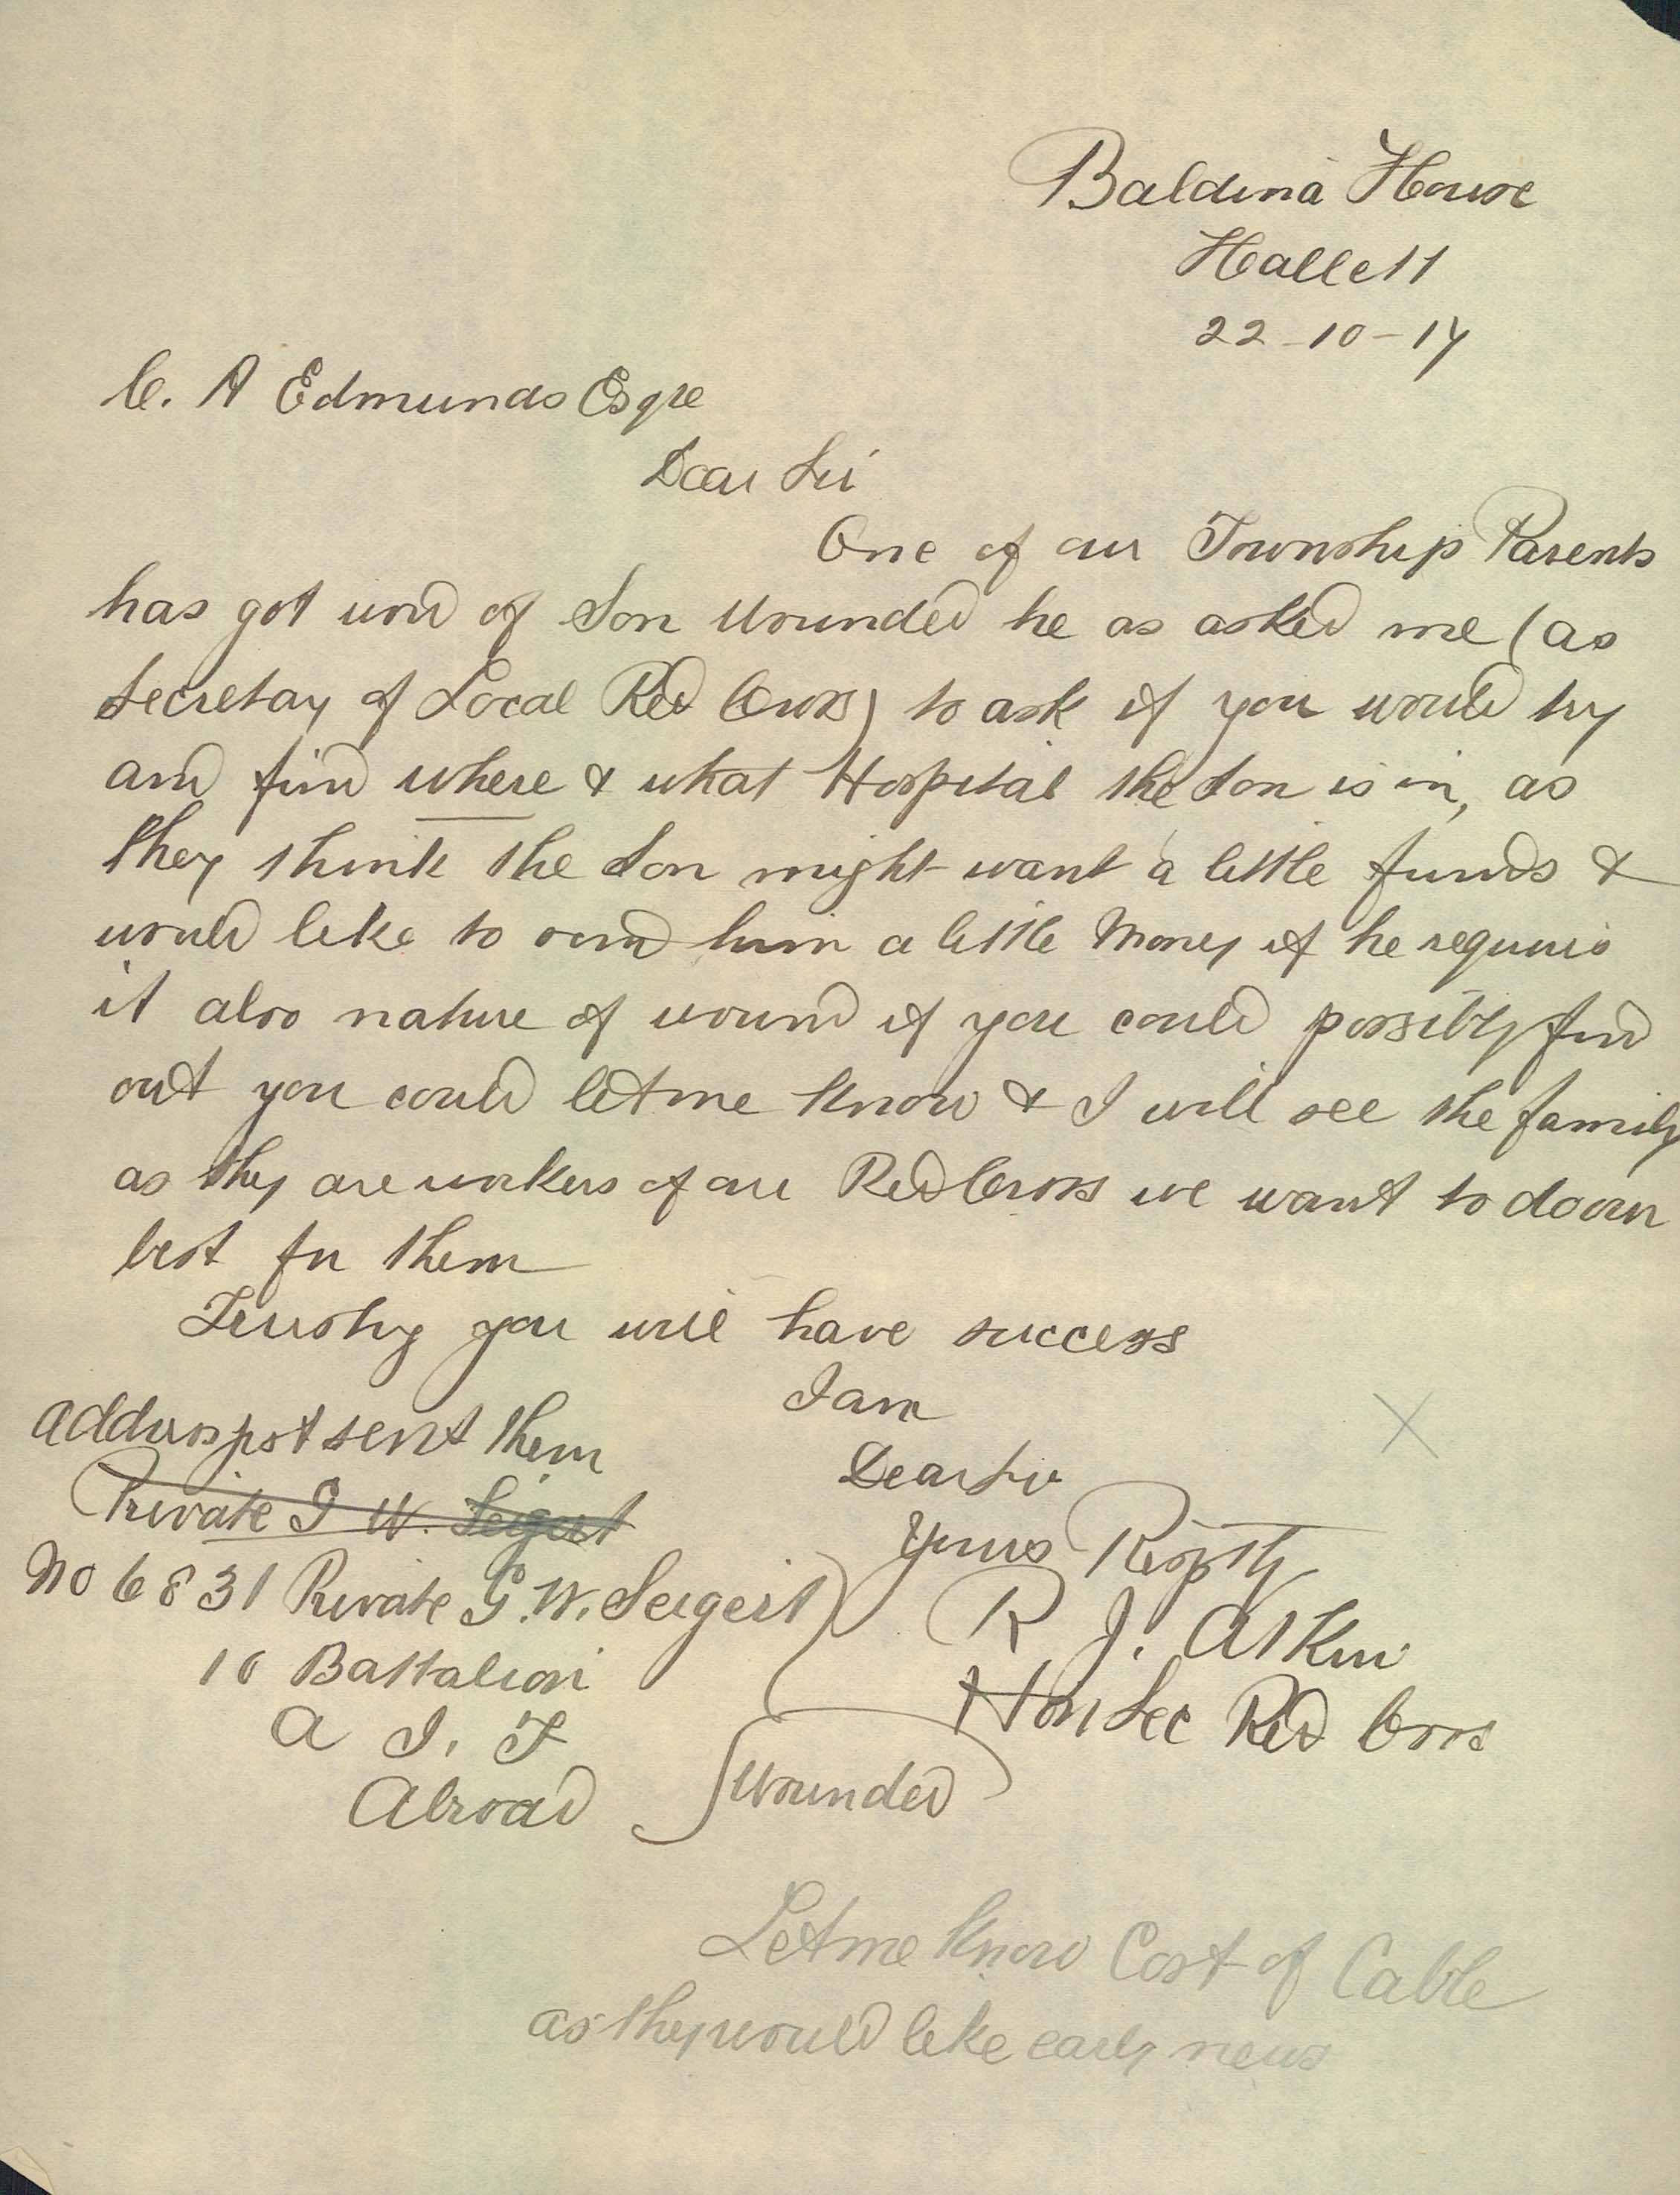 Baldina House
Hallett
22-10-17
C. A Edmunds Esqre
Dear Sir
One of our Township Parents
has got word of Son Wounded he as asked me (as
Secretay of Local Red Cross) to ask if you would try
and find where & what Hospital the Son is in, as
they think the Son might want a little funds &
would like to send him a little Money if he requires
it also nature of wound if you could possibly find
out you could let me know & I will see the family
as they are workers of our Red Cross we want to do our
best for them
Trusting you will have success
I am
Dear Sir
Yours Respty
R J. Atkin
Hon Sec Red Cross
Address just sent them
Private J W. Seigert
No 6831 Private G. W. Seigert
10 Battalion
A I. F
Abroad
Wounded
Let me know Cost of Cable
as they would like early news